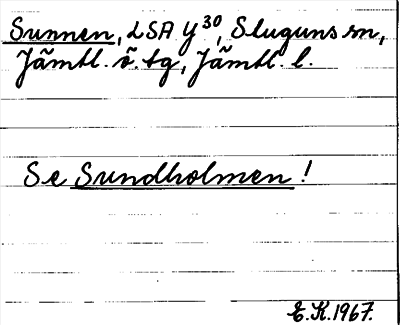 Sunnen, LSA Y³⁰, Sluguns sn,
Jämtl. ö. tg, Jämtl. l.
Se Sundholmen!
E.K.1967.